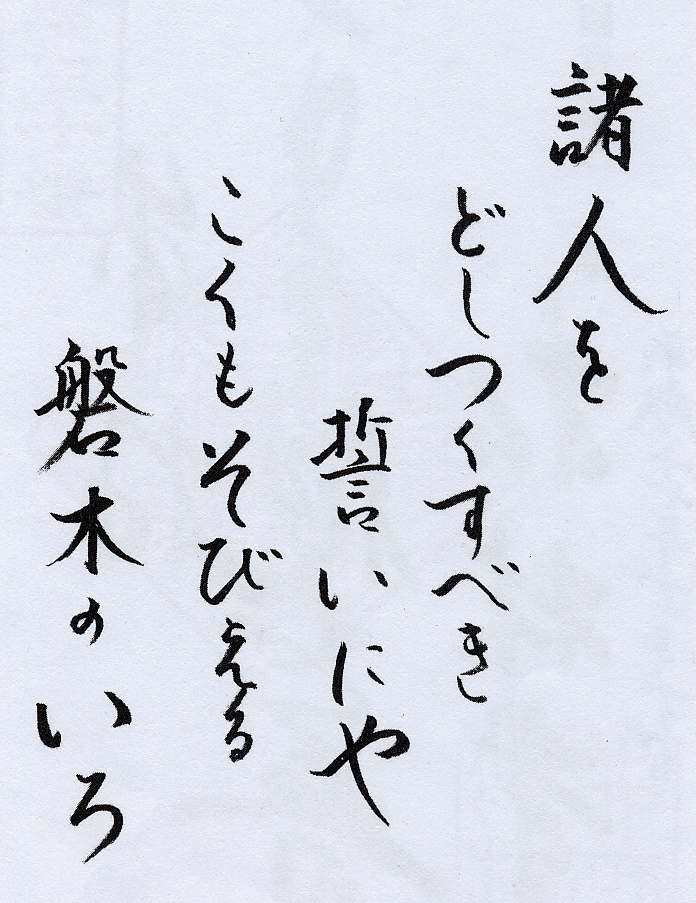 諸人を
どしつくすべき
誓いにや
こくもそびえる
磐木のいろ